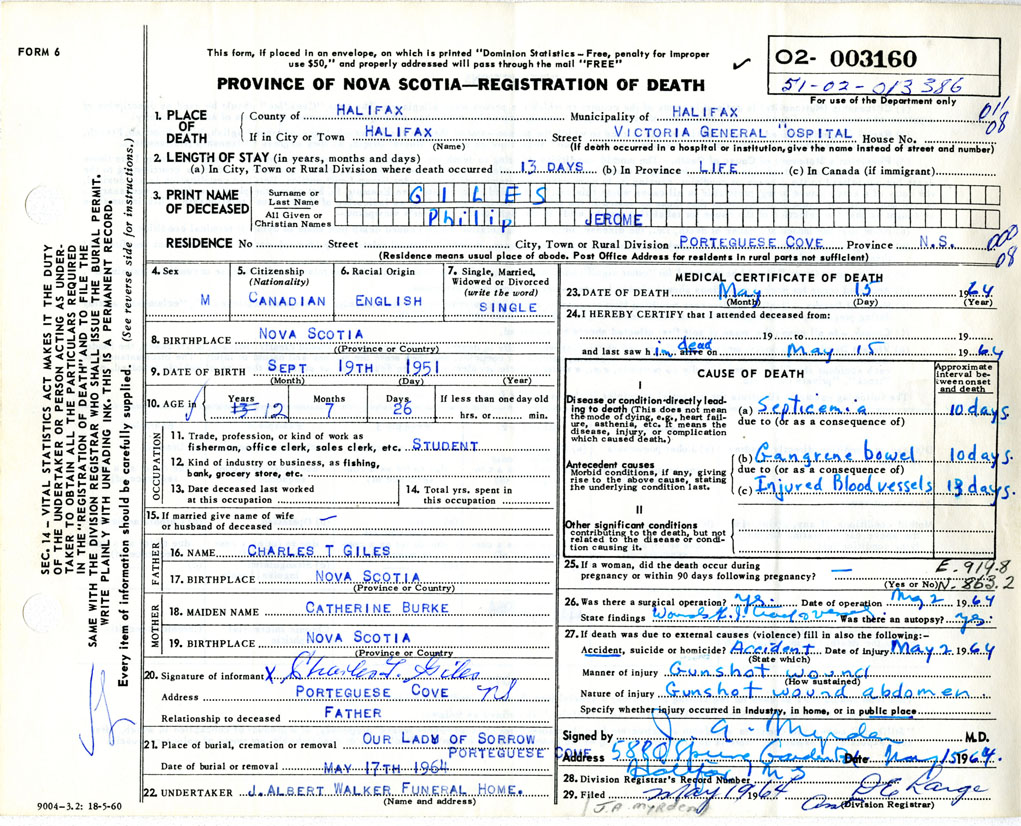 FORM 6
This form, if placed in an envelope, on which is printed "Dominion Statistics—Free, penalty for improper
use $50," and properly addressed will pass through the mail "FREE"
PROVINCE OF NOVA SCOTIA—REGISTRATION OF DEATH
✓
02- 003160
51-02-013386
For use of the Department only
SEC. 14 – VITAL STATISTICS ACT MAKES IT THE DUTY
OF THE UNDERTAKER OR PERSON ACTING AS UNDER-
TAKER TO OBTAIN ALL THE PARTICULARS REQUIRED
IN THE "REGISTRATION OF DEATH" AND TO FILE THE
SAME WITH THE DIVISION REGISTRAR WHO SHALL ISSUE THE BURIAL PERMIT.
WRITE PLAINLY WITH UNFADING INK. THIS IS A PERMANENT RECORD.
Every item of information should be carefully supplied. (See reverse side for instructions.)
1. PLACE OF DEATH
County of HALIFAX Municipality of HALIFAX
If in City or Town HALIFAX Street VICTORIA GENERAL "OSPITAL House No.
(Name) (If death occurred in a hospital or institution, give the name instead of street and number)
011
08
2. LENGTH OF STAY (in years, months and days)
(a) In City, Town or Rural Division where death occurred 13 DAYS (b) In Province LIFE (c) In Canada (if immigrant)
3. PRINT NAME OF DECEASED
Surname or Last Name GILES
All Given or Christian Names Philip JEROME
RESIDENCE No Street City, Town or Rural Division PORTEGUESE COVE Province N.S.
(Residence means usual place of abode. Post Office Address for residents in rural parts not sufficient)
000
08
4. Sex
M
5. Citizenship (Nationality)
CANADIAN
6. Racial Origin
ENGLISH
7. Single, Married, Widowed or Divorced (write the word)
SINGLE
8. BIRTHPLACE NOVA SCOTIA
((Province or Country)
9. DATE OF BIRTH SEPT 19TH 1951
(Month) (Day) (Year)
10. AGE in
Years Months Days If less than one day old
13 12 7 26 hrs. or min.
OCCUPATION
11. Trade, profession, or kind of work as
fisherman, office clerk, sales clerk, etc. STUDENT
12. Kind of industry or business, as fishing,
bank, grocery store, etc.
13. Date deceased last worked
at this occupation
14. Total yrs. spent in
this occupation
15. If married give name of wife
or husband of deceased —
FATHER
16. NAME CHARLES T GILES
17. BIRTHPLACE NOVA SCOTIA
(Province or Country)
MOTHER
18. MAIDEN NAME CATHERINE BURKE
19. BIRTHPLACE NOVA SCOTIA
(Province or Country
20. Signature of informant X Charles T. Giles
Address PORTEGUESE COVE NS
Relationship to deceased FATHER
21. Place of burial, cremation or removal OUR LADY OF SORROW
PORTEGUESE COVE
Date of burial or removal MAY 17TH 1964
22. UNDERTAKER J. ALBERT WALKER FUNERAL HOME.
(Name and address)
9004–3.2: 18-5-60
MEDICAL CERTIFICATE OF DEATH
23. DATE OF DEATH May 15 1964
(Month) (Day) (Year)
24. I HEREBY CERTIFY that I attended deceased from:
19 to 19
and last saw him alive on dead May 15 1964
CAUSE OF DEATH
Approximate interval between onset and death
I
Disease or condition directly leading to death (This does not mean the mode of dying, e.g., heart failure, asthenia, etc. It means the disease, injury, or complication which caused death.)
(a) Septicemia 10 days
due to (or as a consequence of)
Antecedent causes
Morbid conditions, if any, giving rise to the above cause, stating the underlying condition last.
(b) Gangrene bowel 10 days.
due to (or as a consequence of)
(c) Injured Blood vessels 13 days.
II
Other significant conditions
contributing to the death, but not related to the disease or condition causing it.
25. If a woman, did the death occur during
pregnancy or within 90 days following pregnancy? —
(Yes or No)
E. 919.8
N. 863.2
26. Was there a surgical operation? yes. Date of operation May 2 1964
State findings Was there an autopsy? yes.
27. If death was due to external causes (violence) fill in also the following:–
Accident, suicide or homicide? Accident Date of injury May 2 1964
(State which)
Manner of injury Gunshot wound
(How sustained)
Nature of injury Gunshot wound abdomen
Specify whether injury occurred in Industry, in home, or in public place
Signed by J. A. Myrden M.D.
Address 5880 Spring Garden Rd Date May 15 1964
Halifax N S
28. Division Registrar's Record Number
29. Filed May 1964
(Division Registrar)
J.A. MYRDEN